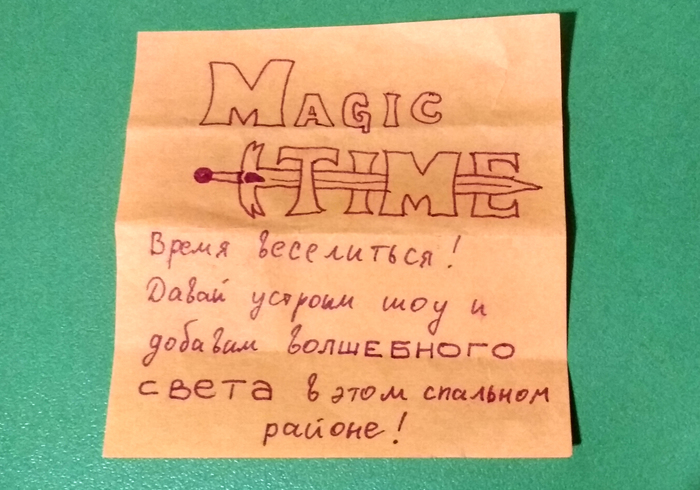 MAGIC
TIME
Время веселиться!
Давай устроим шоу и
добавим ВОЛШЕБНОГО
СВЕТА в этом спальном
районе!